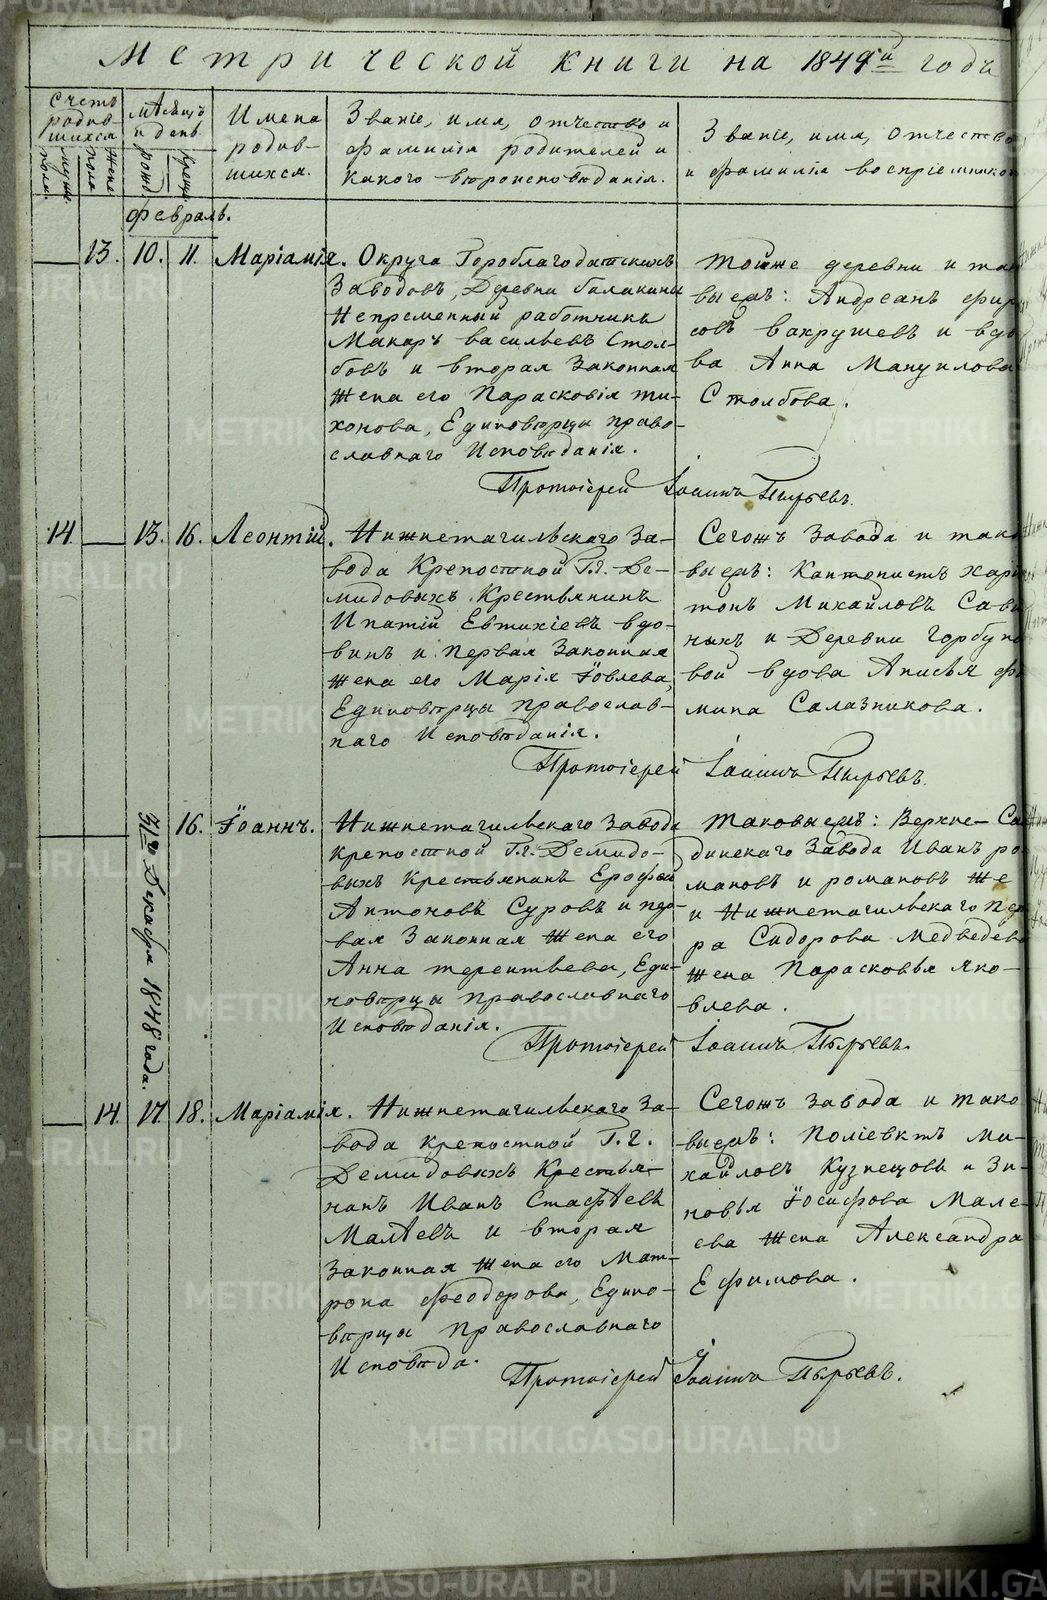 Метрической книги на 1849й годъ
Счетъ родив-
шихся
мужеска пола.
женска пола
Мѣсяцъ
и день
рожд.
крещ.
Имена
родив-
шихся.
Званіе, имя, отчество и
фамилія родителей и
какого вѣроисповѣданія.
Званіе, имя, отчество
и фамилія воспріемников
Февраль.
13. 10. 11. Маріамія.
Округа Гороблагодатскихъ
Заводовъ, Деревни Балакиной
Непременный работникъ
Макаръ Васильевъ Стол-
бовъ и вторая Законная
Жена его Парасковія Ти-
хонова, Единоверцы право-
славнаго Исповѣданія.
Тойже деревни и так
выехъ: Андреанъ Фир
совъ Вакрушевъ и вдо
ва Анна Мануилова
Столбова.
Протоіерей Іоаннъ Пырьевъ.
14. 13. 16. Леонтій.
Нижнетагильскаго За-
вода Крепостной Г.г. Де-
мидовыхъ Крестьянинъ
Ипатій Евтихіевъ Вдо-
винъ и первая Законная
Жена его Марія Іовлева,
Единоверцы православ-
наго Исповѣданія.
Сегожъ Завода и тако
выехъ: Кантонистъ Хари
тонъ Михайловъ Сави
ныхъ и Деревни Горбуно
вой вдова Анисья Фо
мина Салазникова.
Протоіерей Іоаннъ Пырьевъ.
31го Декабря 1848 года.
16. Іоаннъ.
Нижнетагильскаго Завода
крепостной Г.г. Демидо-
выхъ Крестьянинъ Ерофей
Антоновъ Суровъ и пер-
вая Законная Жена его
Анна Терентьева, Еди-
новерцы православнаго
Исповѣданія.
Таковыехъ: Верхне-Сал
динскаго Завода Иванъ Ро
мановъ и Романовъ же
и Нижнетагильскаго Пет
ра Сидорова Медведева
жена Парасковья Яко-
влева.
Протоіерей Іоаннъ Пырьевъ.
14. 17. 18. Маріамія.
Нижнетагильскаго За-
вода крепостной Г.г.
Демидовыхъ Крестья-
нинъ Иванъ Стафѣевъ
Малѣевъ и вторая
Законная Жена его Мат-
рона Феодорова, Едино-
верцы Православнаго
Исповѣда.
Сегожъ Завода и тако
выехъ: Поліевктъ Ми-
хайловъ Кузнецовъ и Зи-
новья Іосифова Мале-
ева Жена Александра
Ефимова.
Протоіерей Іоаннъ Пырьевъ.
METRIKI.GASO-URAL.RU